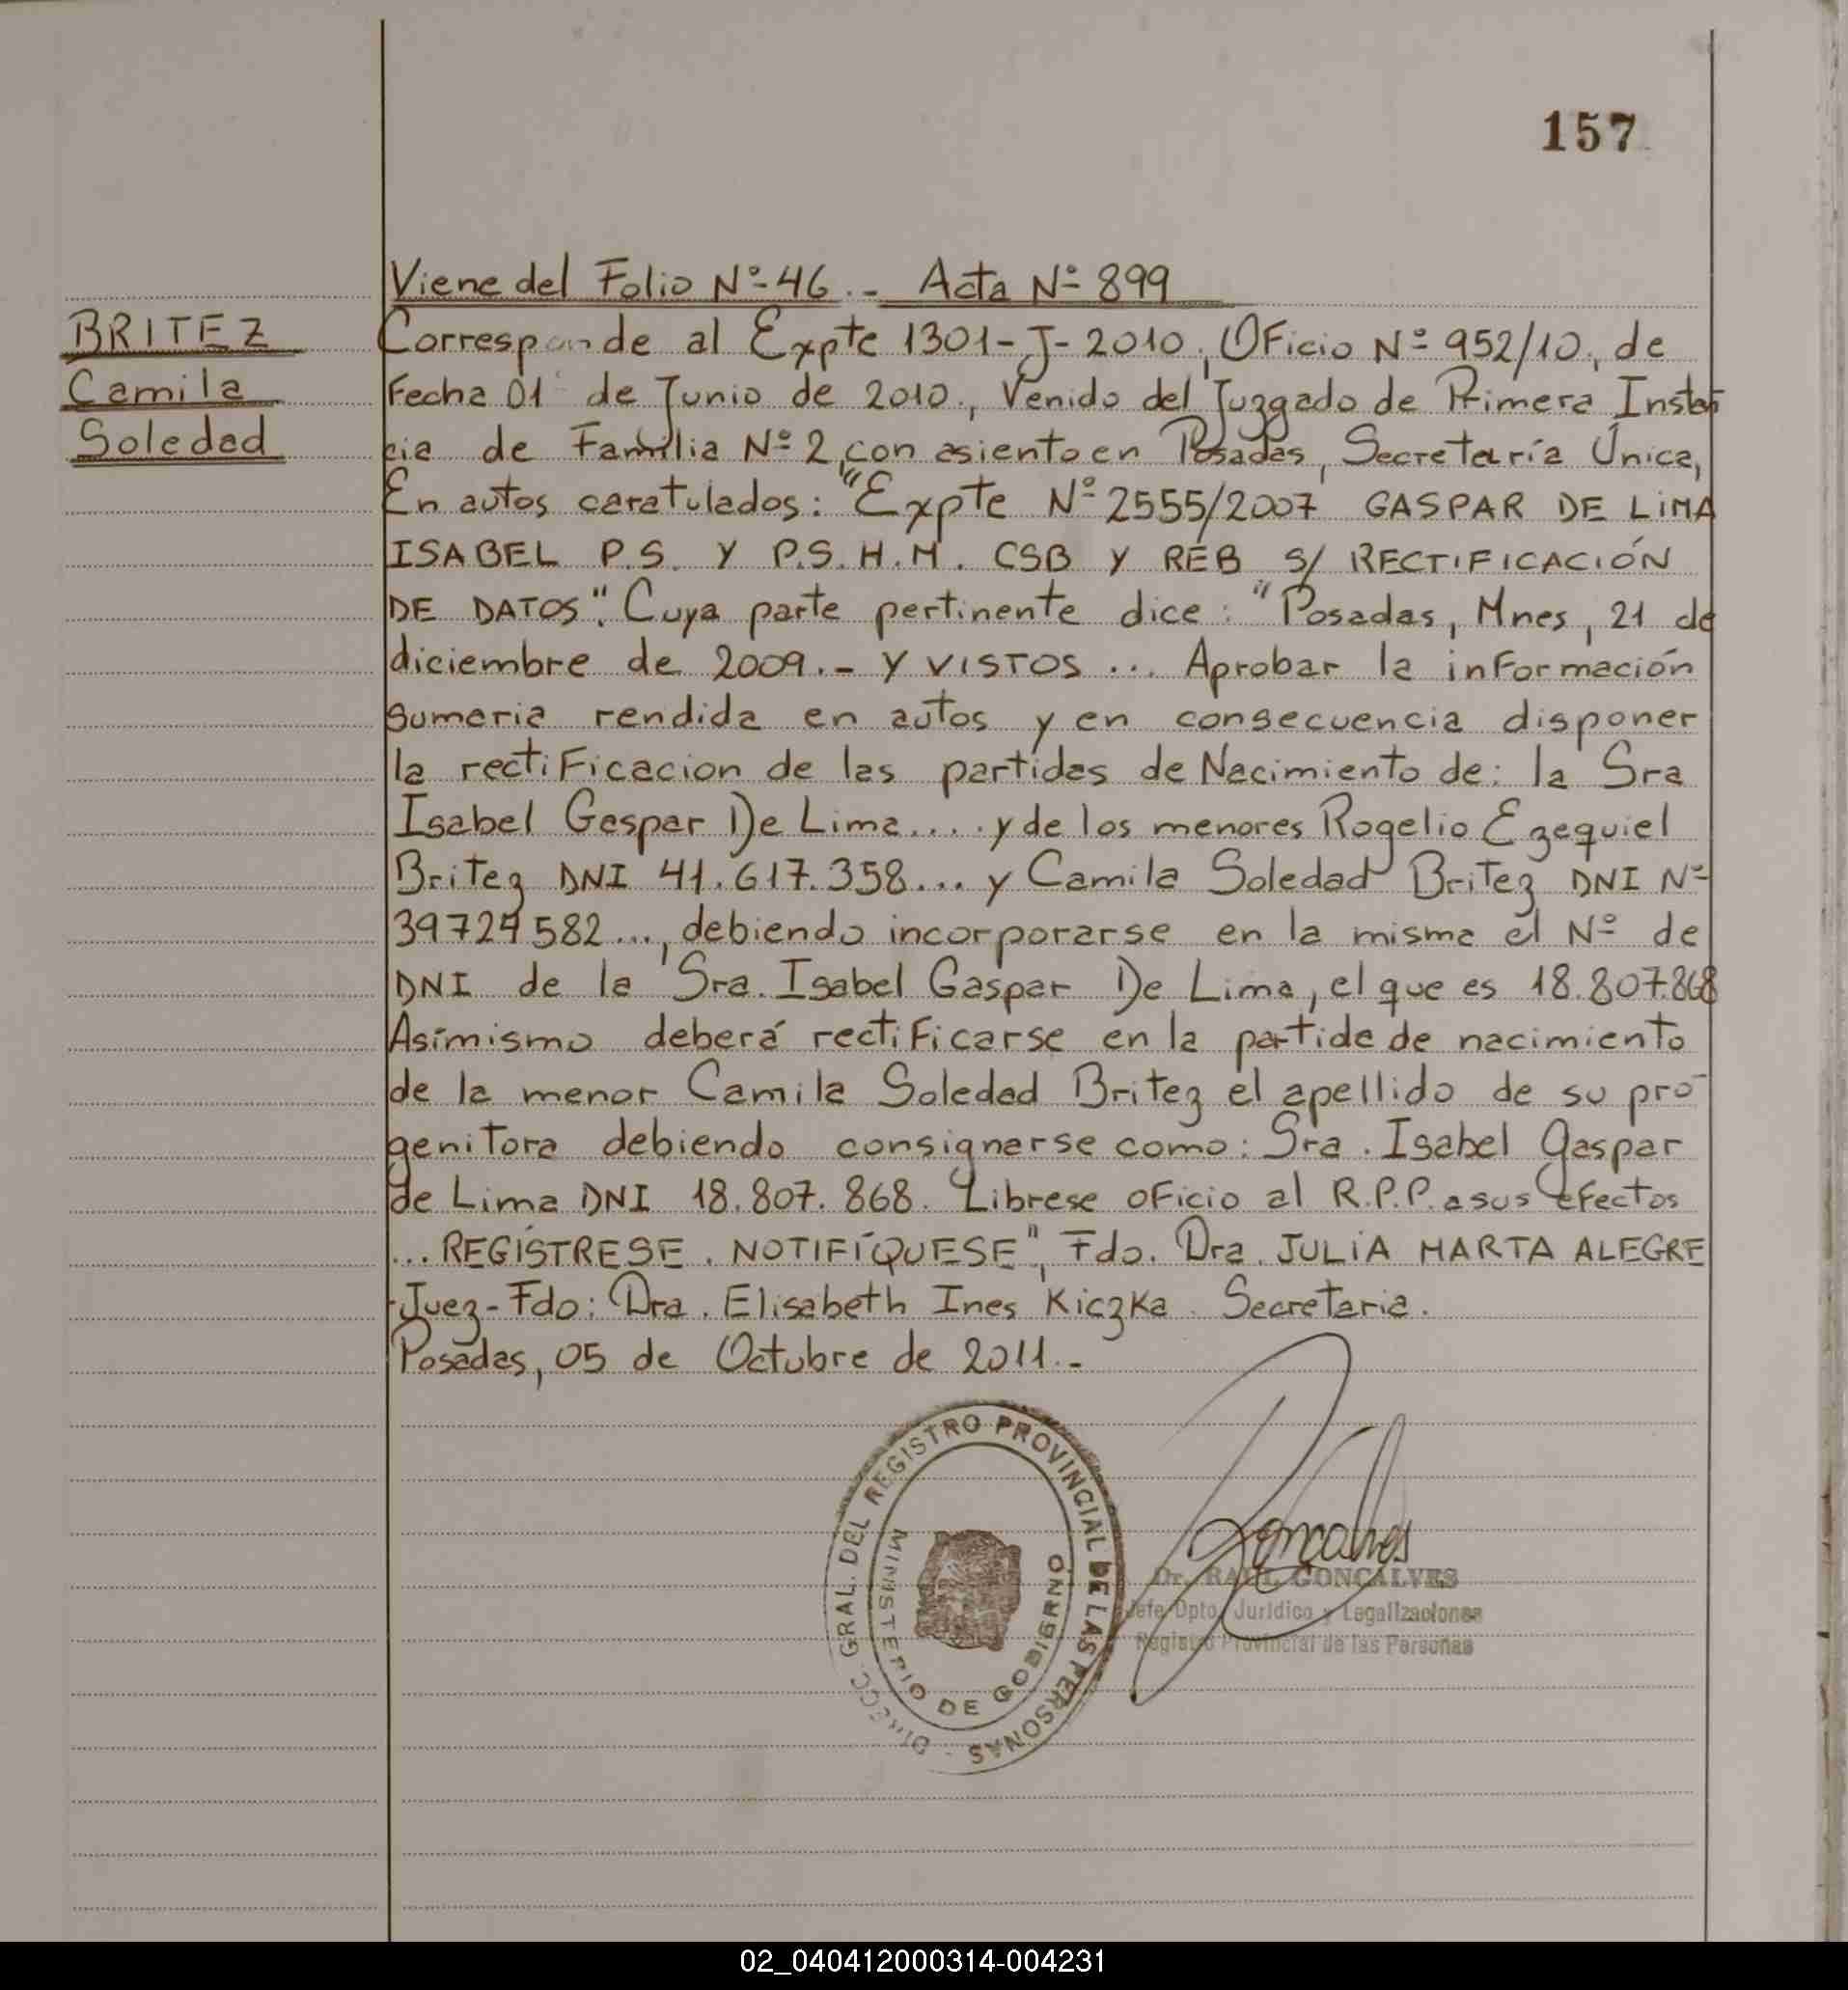 157
Viene del Folio Nº 46.- Acta Nº 899
BRITEZ
Camila
Soledad
Corresponde al Expte 1301-J-2010, Oficio Nº 952/10, de
Fecha 01 de Junio de 2010, Venido del Juzgado de Primera Instan
cia de Familia Nº 2, con asiento en Posadas, Secretaría Única,
En autos caratulados: "Expte Nº 2555/2007 GASPAR DE LIMA
ISABEL P.S. Y P.S.H.M. CSB Y REB S/ RECTIFICACIÓN
DE DATOS". Cuya parte pertinente dice: "Posadas, Mnes, 21 de
diciembre de 2009.- Y VISTOS ... Aprobar la información
sumaria rendida en autos y en consecuencia disponer
la rectificacion de las partidas de Nacimiento de: la Sra
Isabel Gaspar De Lima.... y de los menores Rogelio Ezequiel
Britez DNI 41.617.358... y Camila Soledad Britez DNI Nº
39724582..., debiendo incorporarse en la misma el Nº de
DNI de la Sra. Isabel Gaspar De Lima, el que es 18.807.868
Asímismo deberá rectificarse en la partida de nacimiento
de la menor Camila Soledad Britez el apellido de su pro-
genitora debiendo consignarse como: Sra. Isabel Gaspar
de Lima DNI 18.807.868. Librese oficio al R.P.P. a sus efectos
... REGÍSTRESE. NOTIFÍQUESE", Fdo. Dra. JULIA MARTA ALEGRE
Juez-Fdo: Dra. Elisabeth Ines Kiczka. Secretaria.
Posadas, 05 de Octubre de 2011.-
DIRECC. GRAL. DEL REGISTRO PROVINCIAL DE LAS PERSONAS -
MINISTERIO DE GOBIERNO
Goncalves
Dr. RAUL GONCALVES
Jefe Dpto. Jurídico y Legalizaciones
Registro Provincial de las Personas
02_040412000314-004231